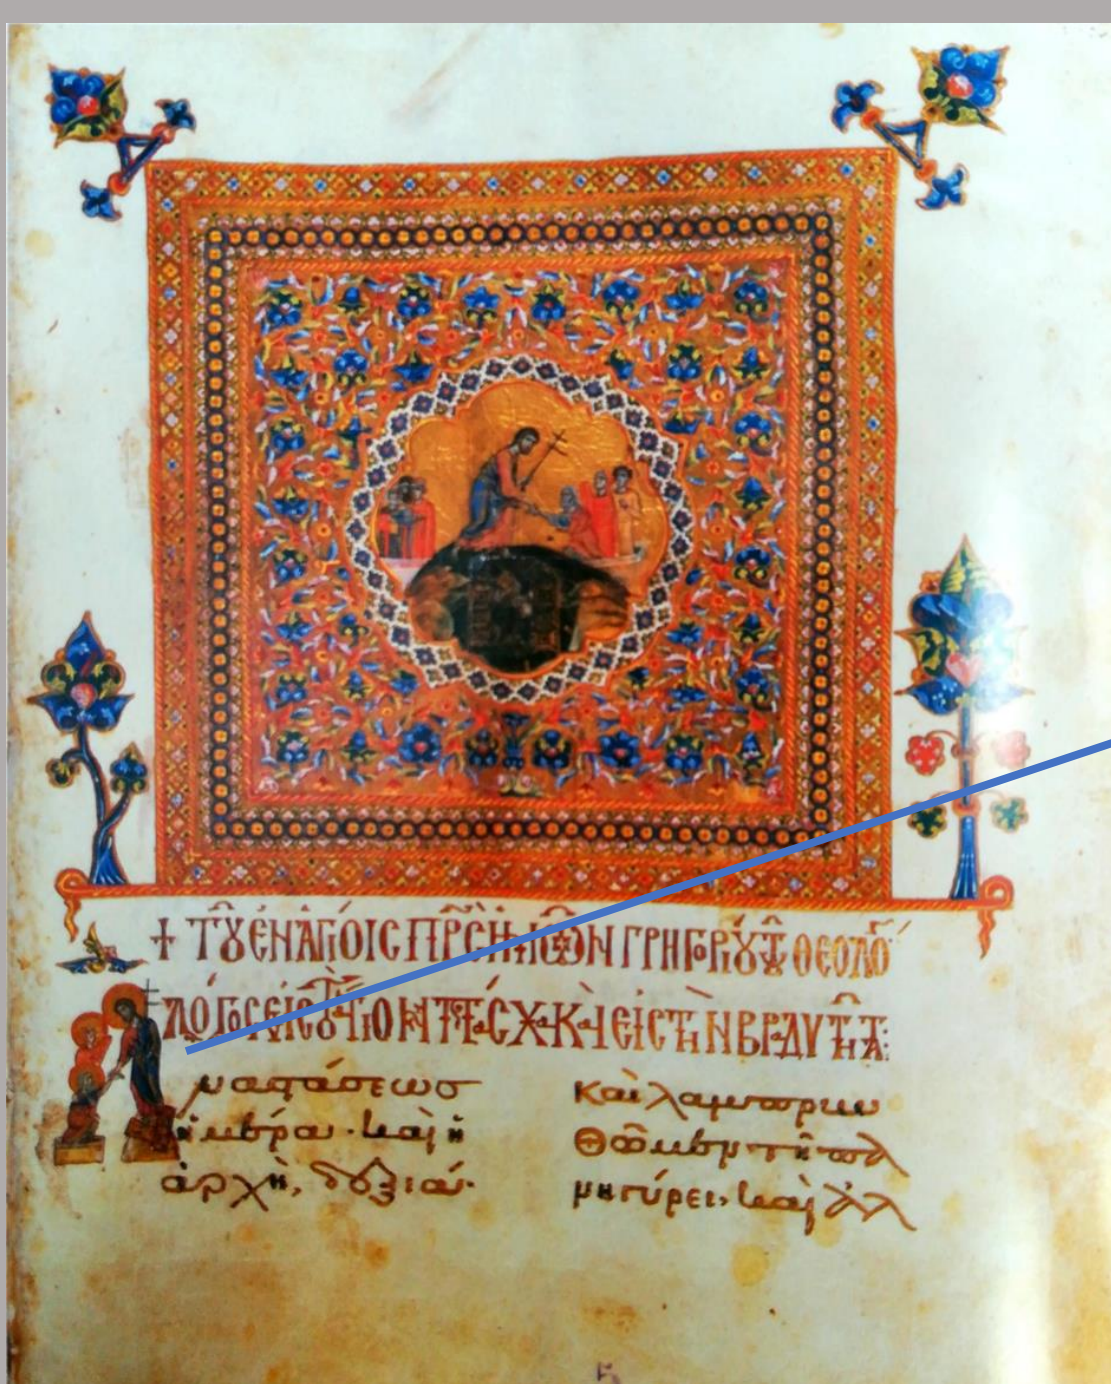 + ΤȢ ΕΝ ΑΓΙΟΙC ΠΡC ΗΜΩΝ ΓΡΗΓΟΡΙΟΥ ΤȢ ΘΕΟΛΟ
ΛΟΓΟC ΕΙC ΤΟ ΑΓΙΟΝ ΠΑCΧΑ Κ ΕΙC ΤΗΝ ΒΡΑΔΥΤΗΤΑ:
Ἀναστάσεως
ἡμέρα· καὶ ἡ
ἀρχὴ, δεξιά·
Καὶ λαμπρυν
θῶμεν τῆ πα
νηγύρει, καὶ ἀλ